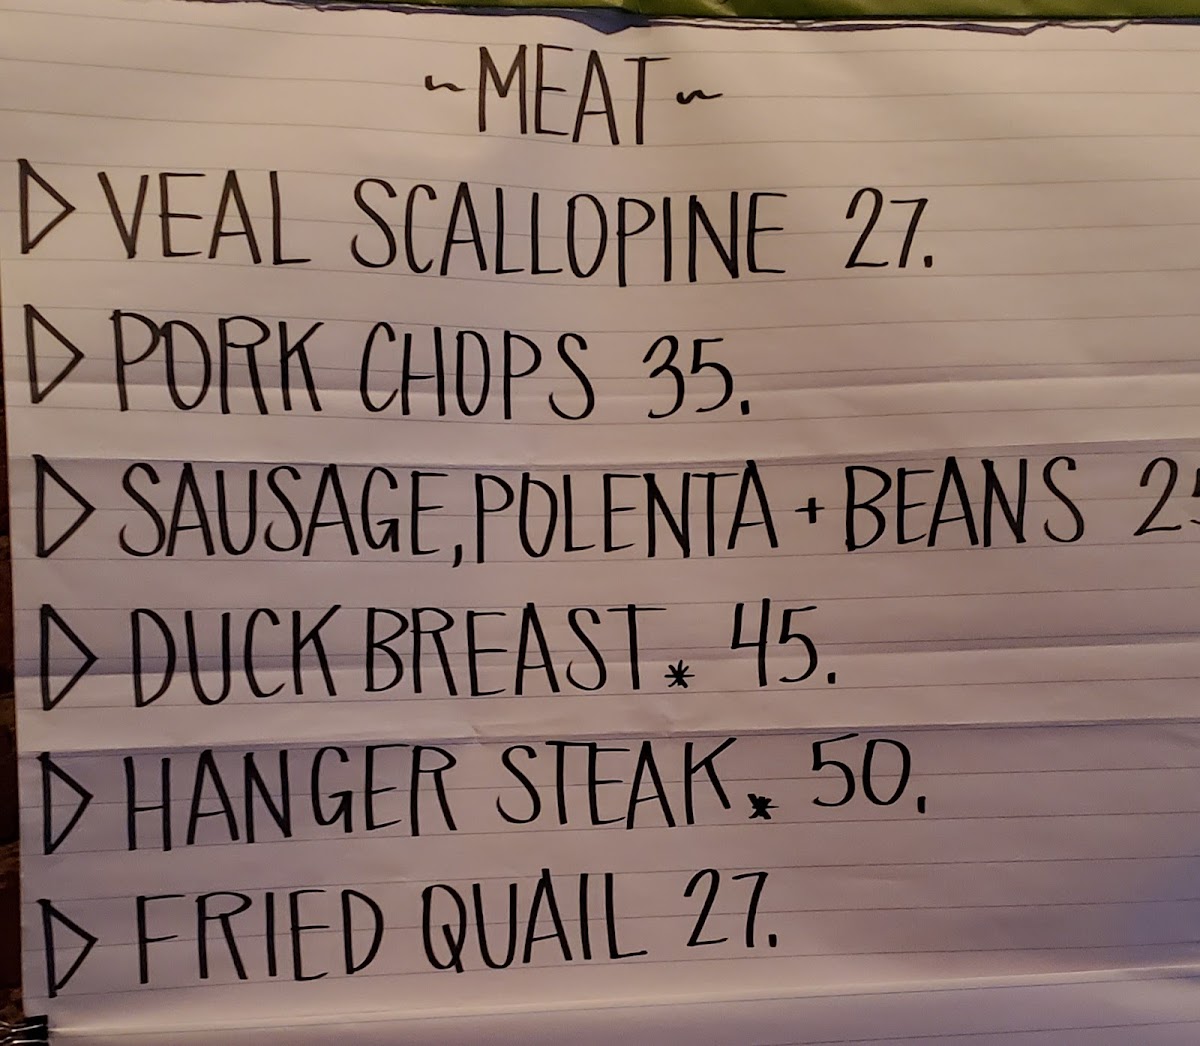 ~MEAT~
▷ VEAL SCALLOPINE 27.
▷ PORK CHOPS 35.
▷ SAUSAGE, POLENTA + BEANS
▷ DUCK BREAST * 45.
▷ HANGER STEAK * 50.
▷ FRIED QUAIL 27.